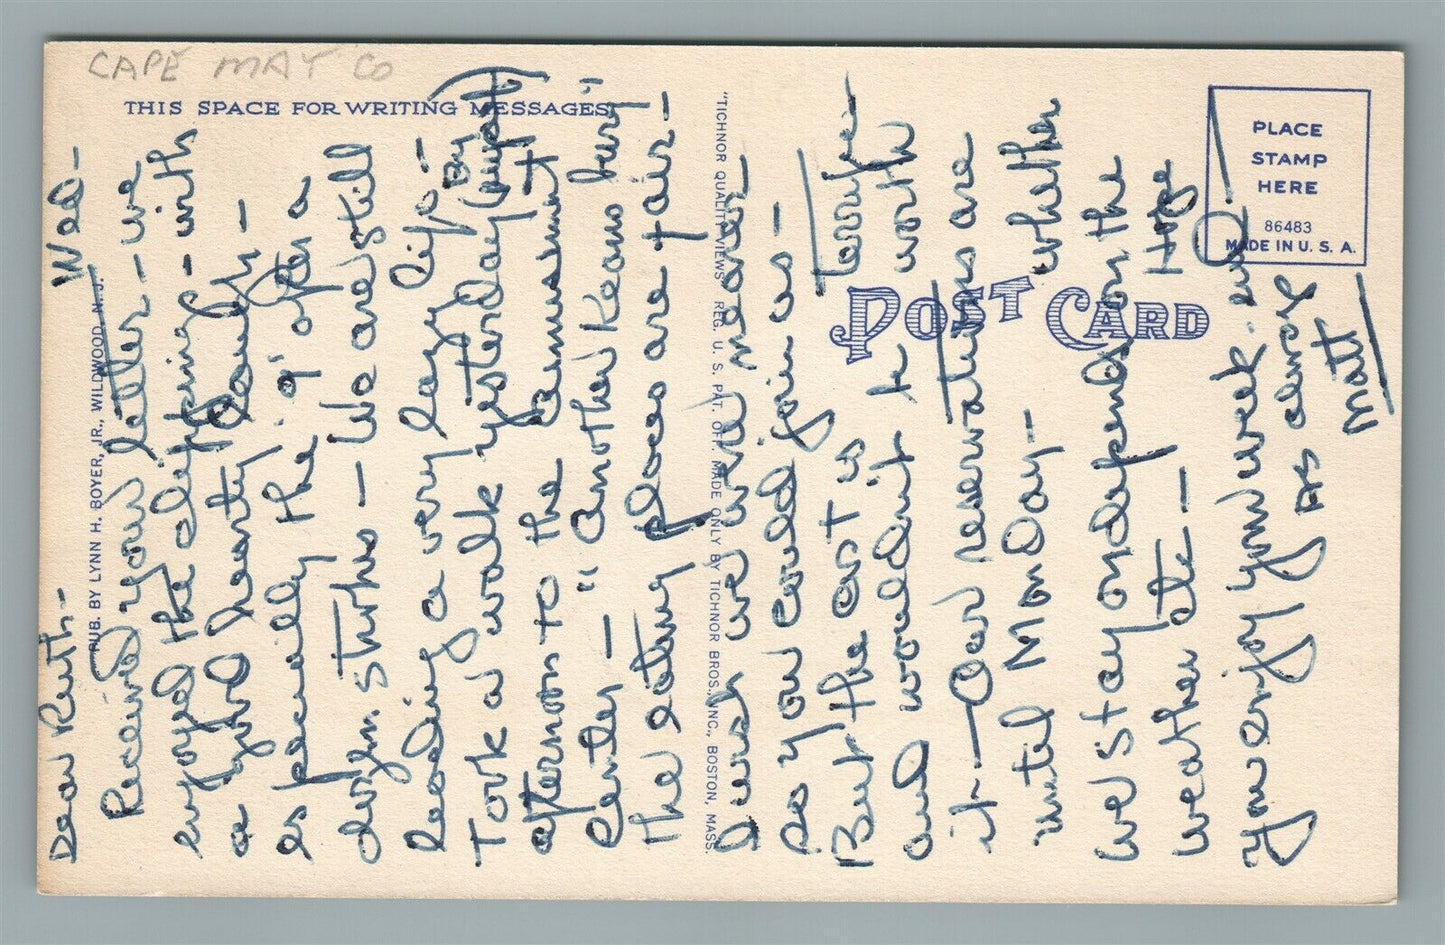 CAPE MAY CO
THIS SPACE FOR WRITING MESSAGES
PUB. BY LYNN H. BOYER, JR., WILDWOOD, N. J.
"TICHNOR QUALITY VIEWS" REG. U. S. PAT. OFF. MADE ONLY BY TICHNOR BROS., INC., BOSTON, MASS.
POST CARD
PLACE
STAMP
HERE
86483
MADE IN U. S. A.
Wed-
Dear Ruth-
Received your letter - we
enjoyed the clipping - with
a good hearty laugh -
especially the "9" after a
dozen strokes - We are still
leading a very lazy life -
Took a walk yesterday (
afternoon to the amusement
Center - "Another Keansburg"
The eating places are fair -
Wish we were nearer
so you could join us -
But the cost is terrific
and wouldn't be worth
it - Our reservations are
until Monday - whether
we stay on depends on the
weather etc - Hope
you enjoy your week-end
As always
Matt